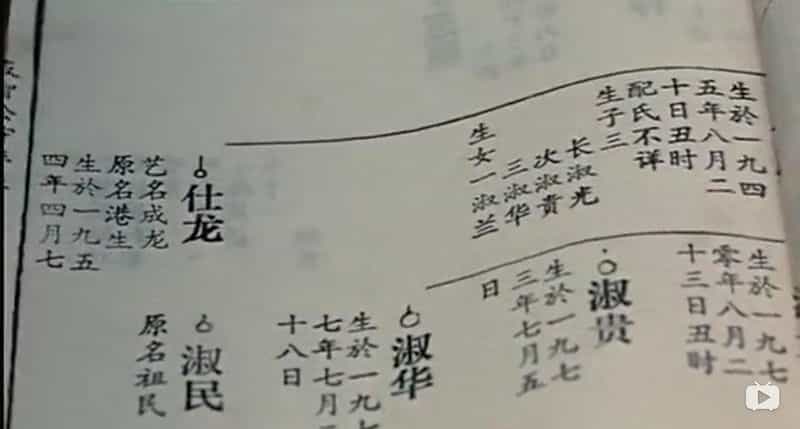 生於一九四
五年八月二
十日丑时
配氏不详
生子三
长淑光
次淑贵
三淑华
生女一淑兰
仕龙
艺名成龙
原名港生
生於一九五
四年四月七
生於一九七
零年八月二
十三日丑时
淑贵
生於一九七
三年七月五
日
淑华
生於一九七
七年七月
十八日
淑民
原名祖民